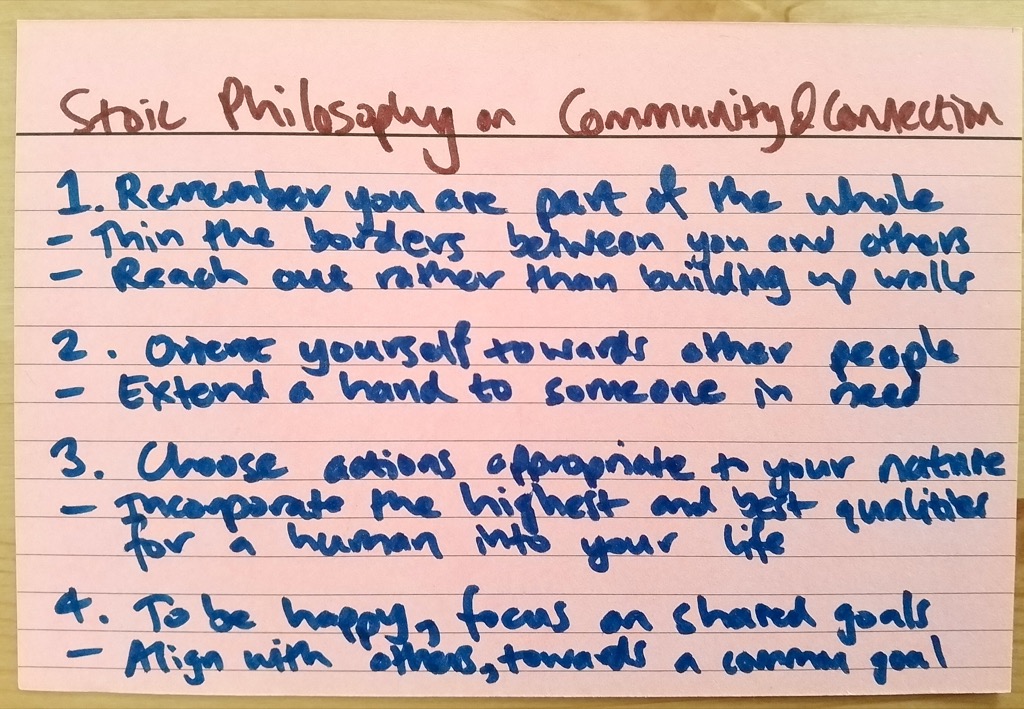 Stoic Philosophy on Community & Connection
1. Remember you are part of the whole
- Thin the borders between you and others
- Reach out rather than building up walls
2. Orient yourself towards other people
- Extend a hand to someone in need
3. Choose actions appropriate to your nature
- Incorporate the highest and best qualities
for a human into your life
4. To be happy, focus on shared goals
- Align with others, towards a common goal